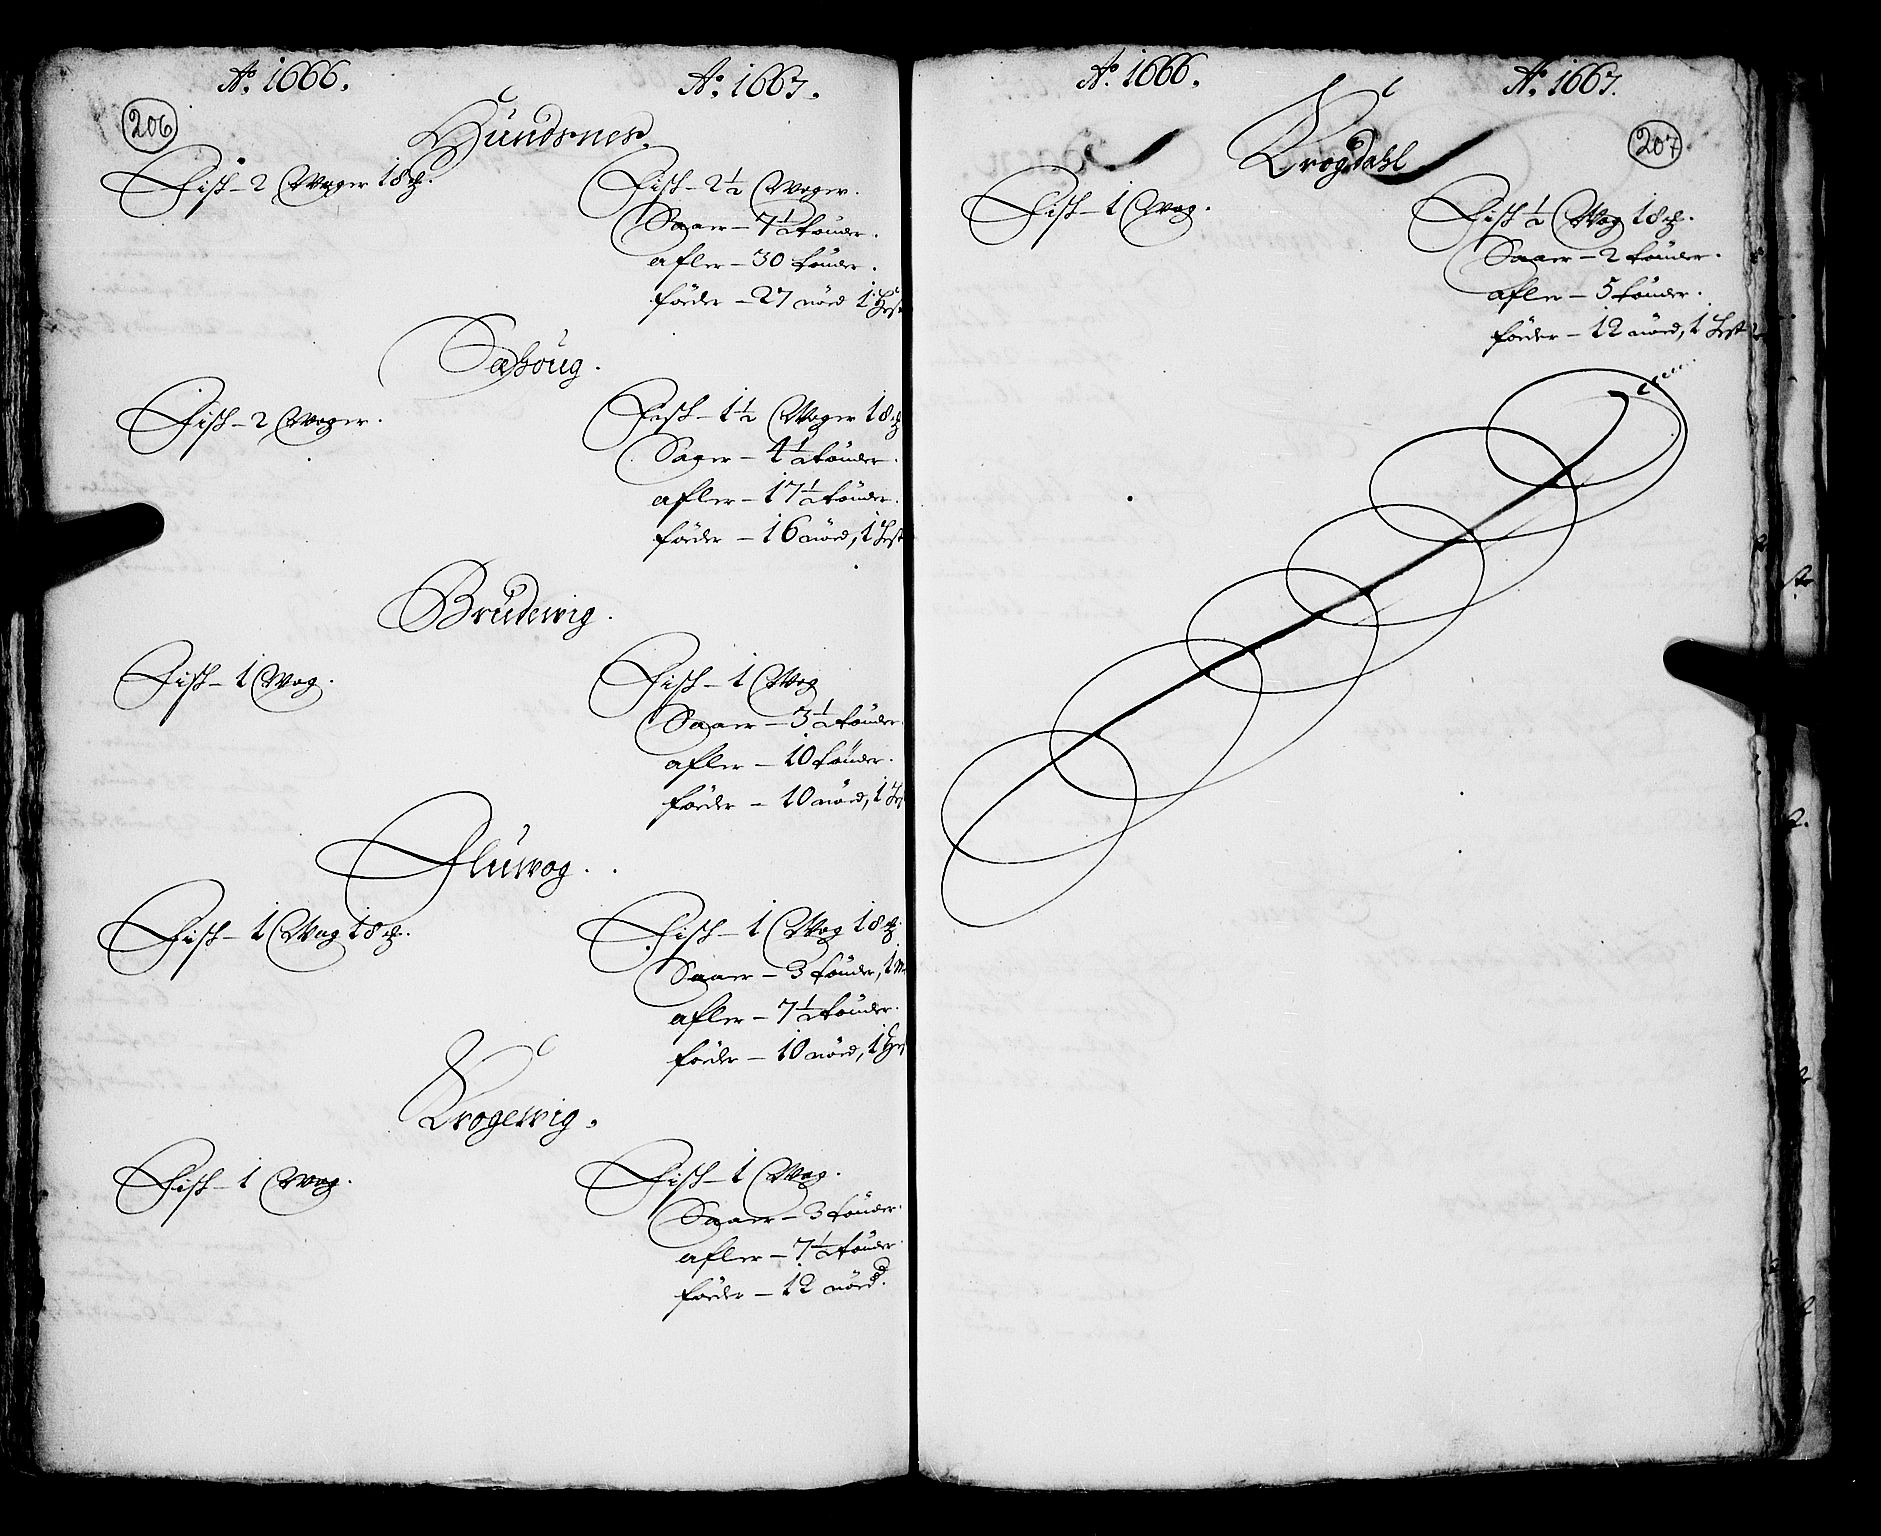 Ao. 1666. Ao. 1667.
206
Hundsnes.
Fisk – 2 Woger 18 ℔.
Fisk – 2½ Woger.
Saaer – 7½ tönder.
afler – 30 tönder.
föder – 27 nöed 1 Hest
Sæhoug.
Fisk – 2 Woger.
Fisk – 1½ Woger 18 ℔
Saaer – 4½ tönder.
afler – 17½ tönder.
föder – 16 nöed, 1 Hest
Brudewig.
Fisk – 1 Wog.
Fisk – 1 Wog
Saaer – 3½ tönder.
afler – 10 tönder.
föder – 10 nöed, 1 Hes
Fluwog.
Fisk – 1 Wog 18 ℔.
Fisk – 1 Wog 18 ℔.
Saaer – 3 tönder, 1
afler – 7½ tönder.
föder – 10 nöed, 1 Hes
Krogewig.
Fisk – 1 Wog.
Fisk – 1 Wog.
Saaer – 3 tönder.
afler – 7½ tönder.
föder – 12 nöed.
Ao. 1666. Ao. 1667.
207
Krogdahl
Fisk – 1 Wog.
Fisk ½ Wog 18 ℔.
Saaer – 2 tönder.
afler – 5 tönder.
föder – 12 nöed, 1 Hest